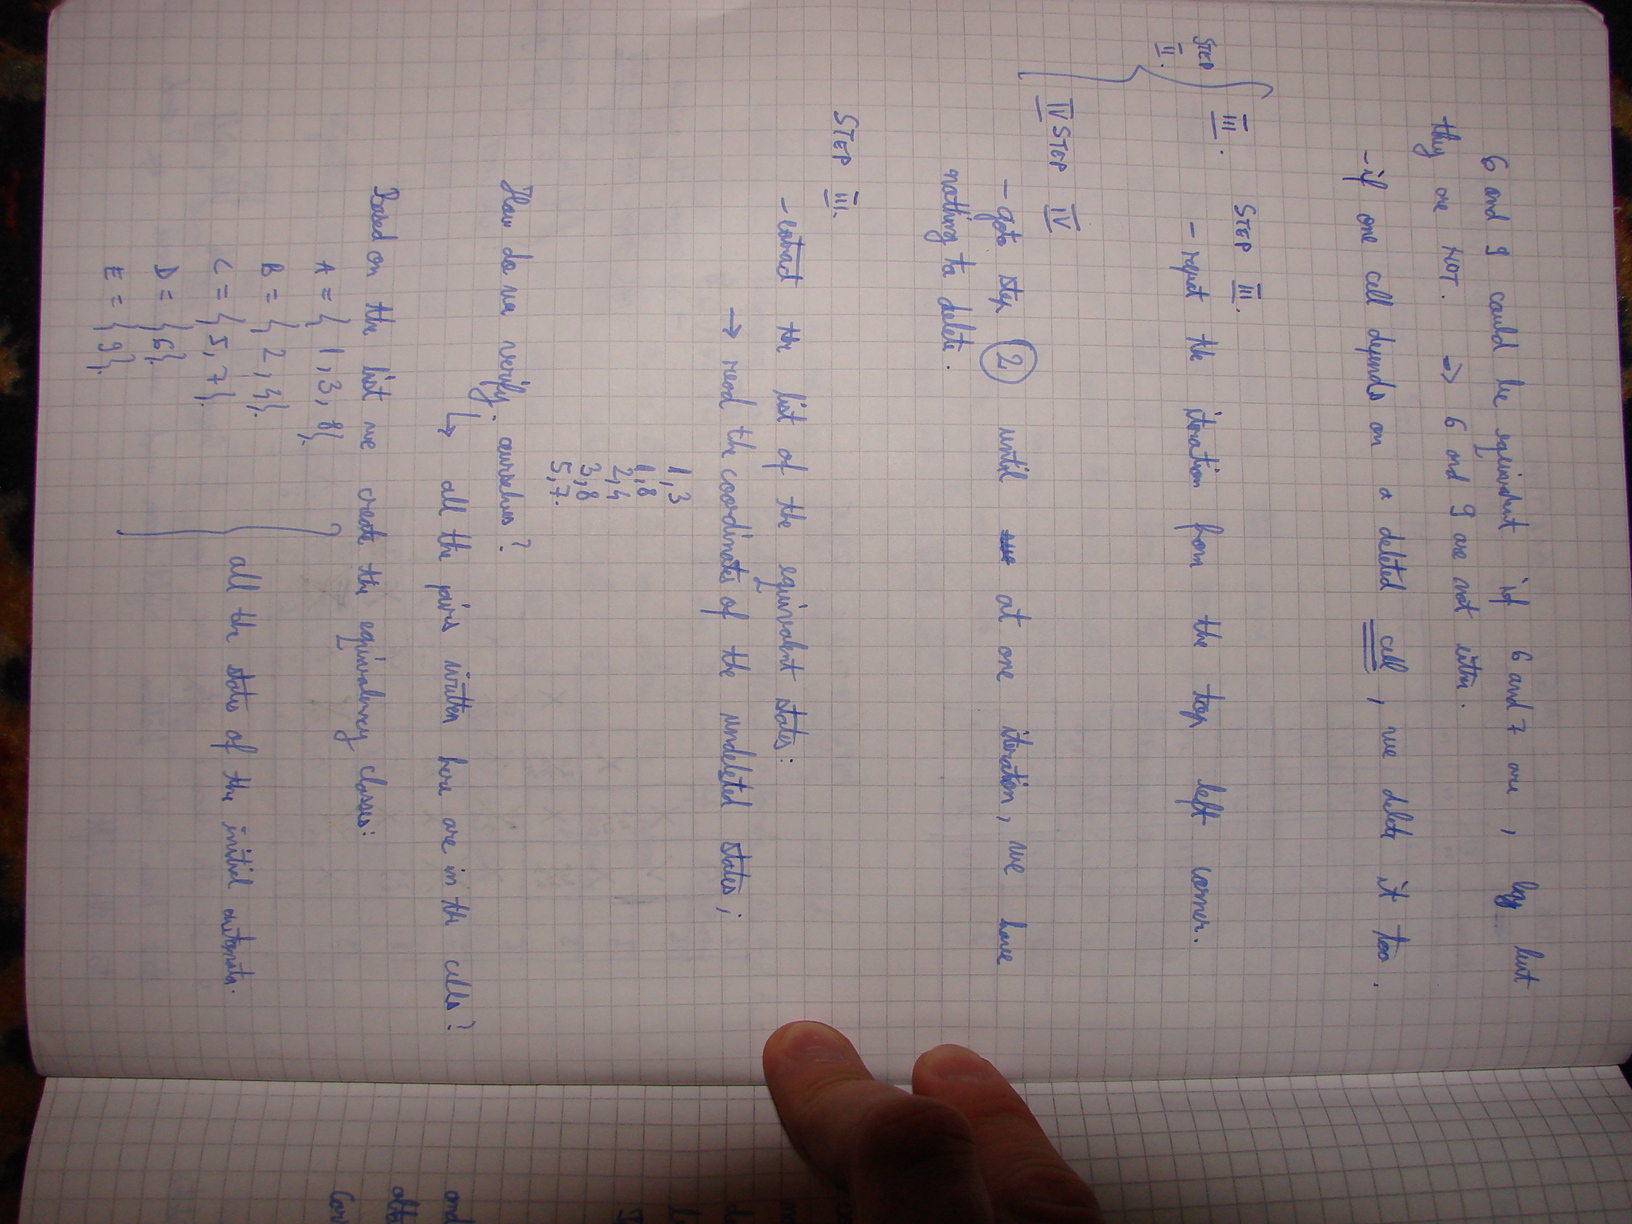 6 and 9 could be equivalent if 6 and 7 are, but
they are NOT. => 6 and 9 are not either.
- if one cell depends on a deleted cell, we delete it too.
STEP II.
III. STEP III.
- repeat the iteration from the top left corner.
IV STEP IV
- goto step 2 until at one iteration, we have
nothing to delete.
STEP III.
- extract the list of the equivalent states:
→ read the coordinates of the undeleted states;
1,3
1,8
2,4
3,8
5,7.
How do we verify ourselves?
↳ all the pairs written here are in the cells?
Based on the list we create the equivalency classes:
A = { 1, 3, 8}.
B = { 2, 4}.
C = { 5, 7}.
D = {6}.
E = {9}.
all the states of the initial automata.
and